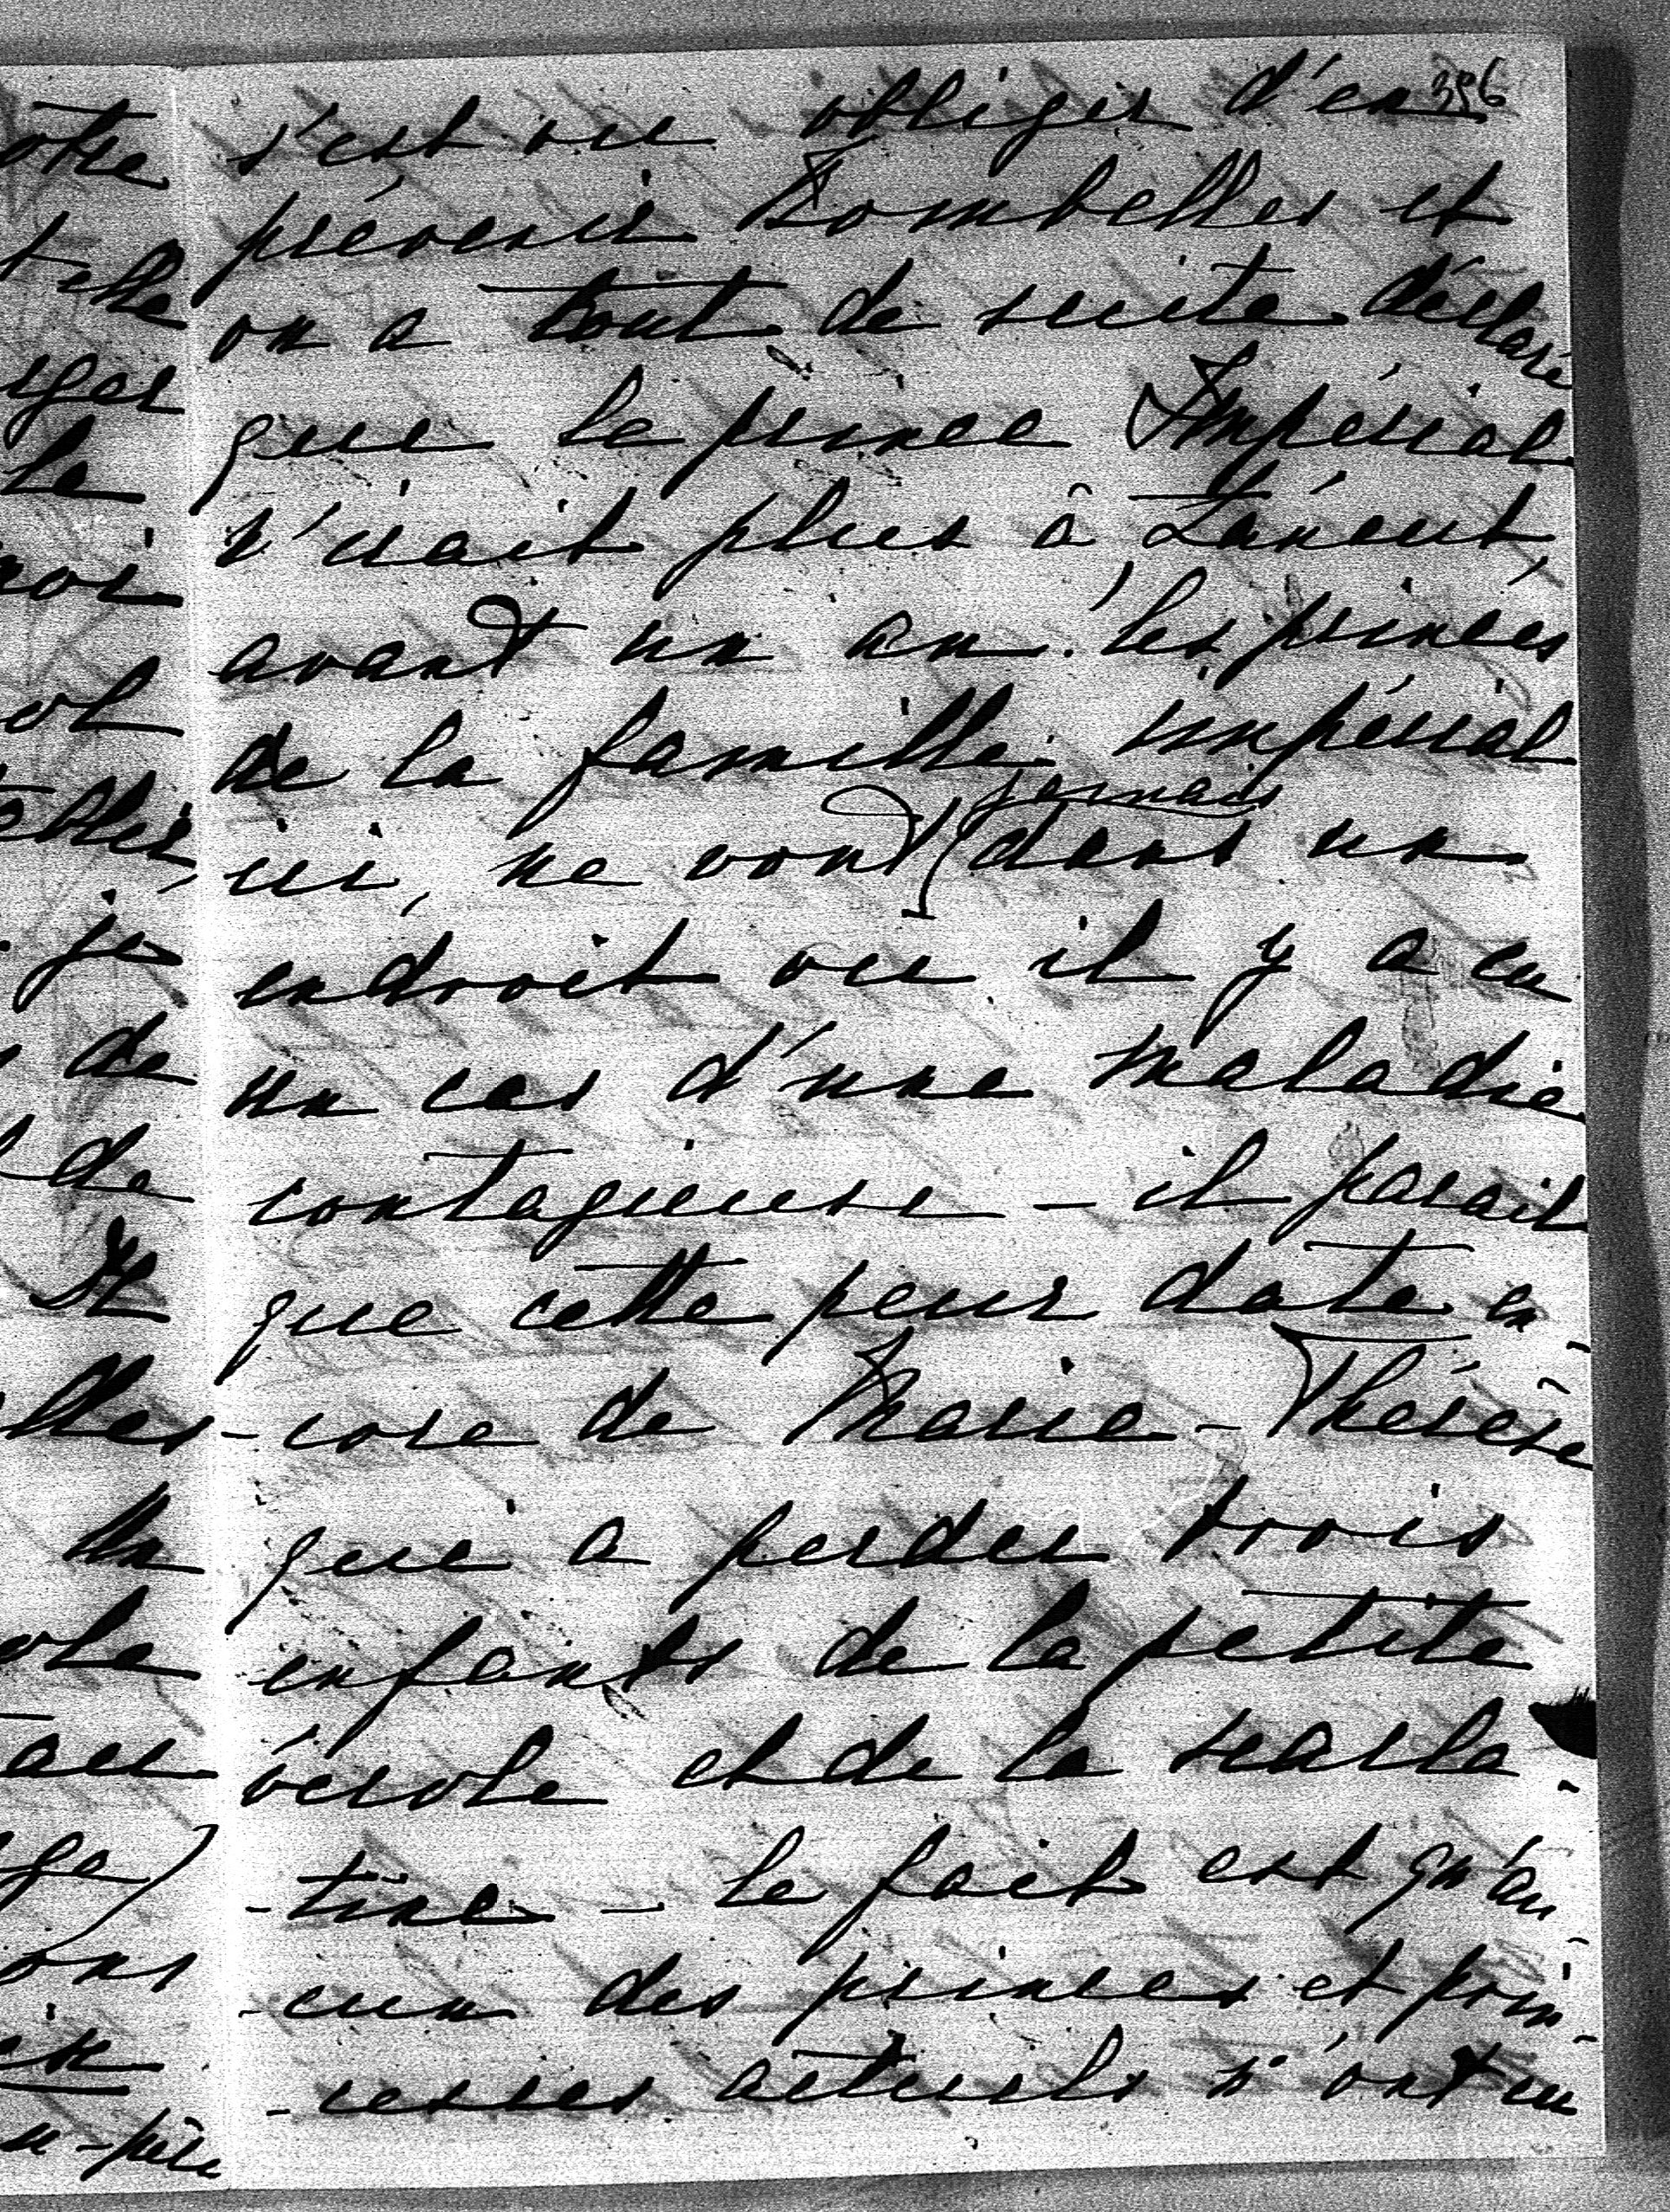 396
s'est vu obliger d'en
prévenir Bombelles et
on a tout de suite déclaré
que le prince Impérial
n'irait plus à Lancut,
avant un an. les princes
de la famille impérial
ici, ne vont jamais dans un
endroit ou il y a eu
un cas d'une maladie
contagieuse – il parait
que cette peur date en-
-core de Marie-Thérèse
qui a perder trois
enfants de la petite
vérole et de la scarla-
-tine – le fait est qu'au-
-cun des princes et prin-
-cesses actuels n'ont eu